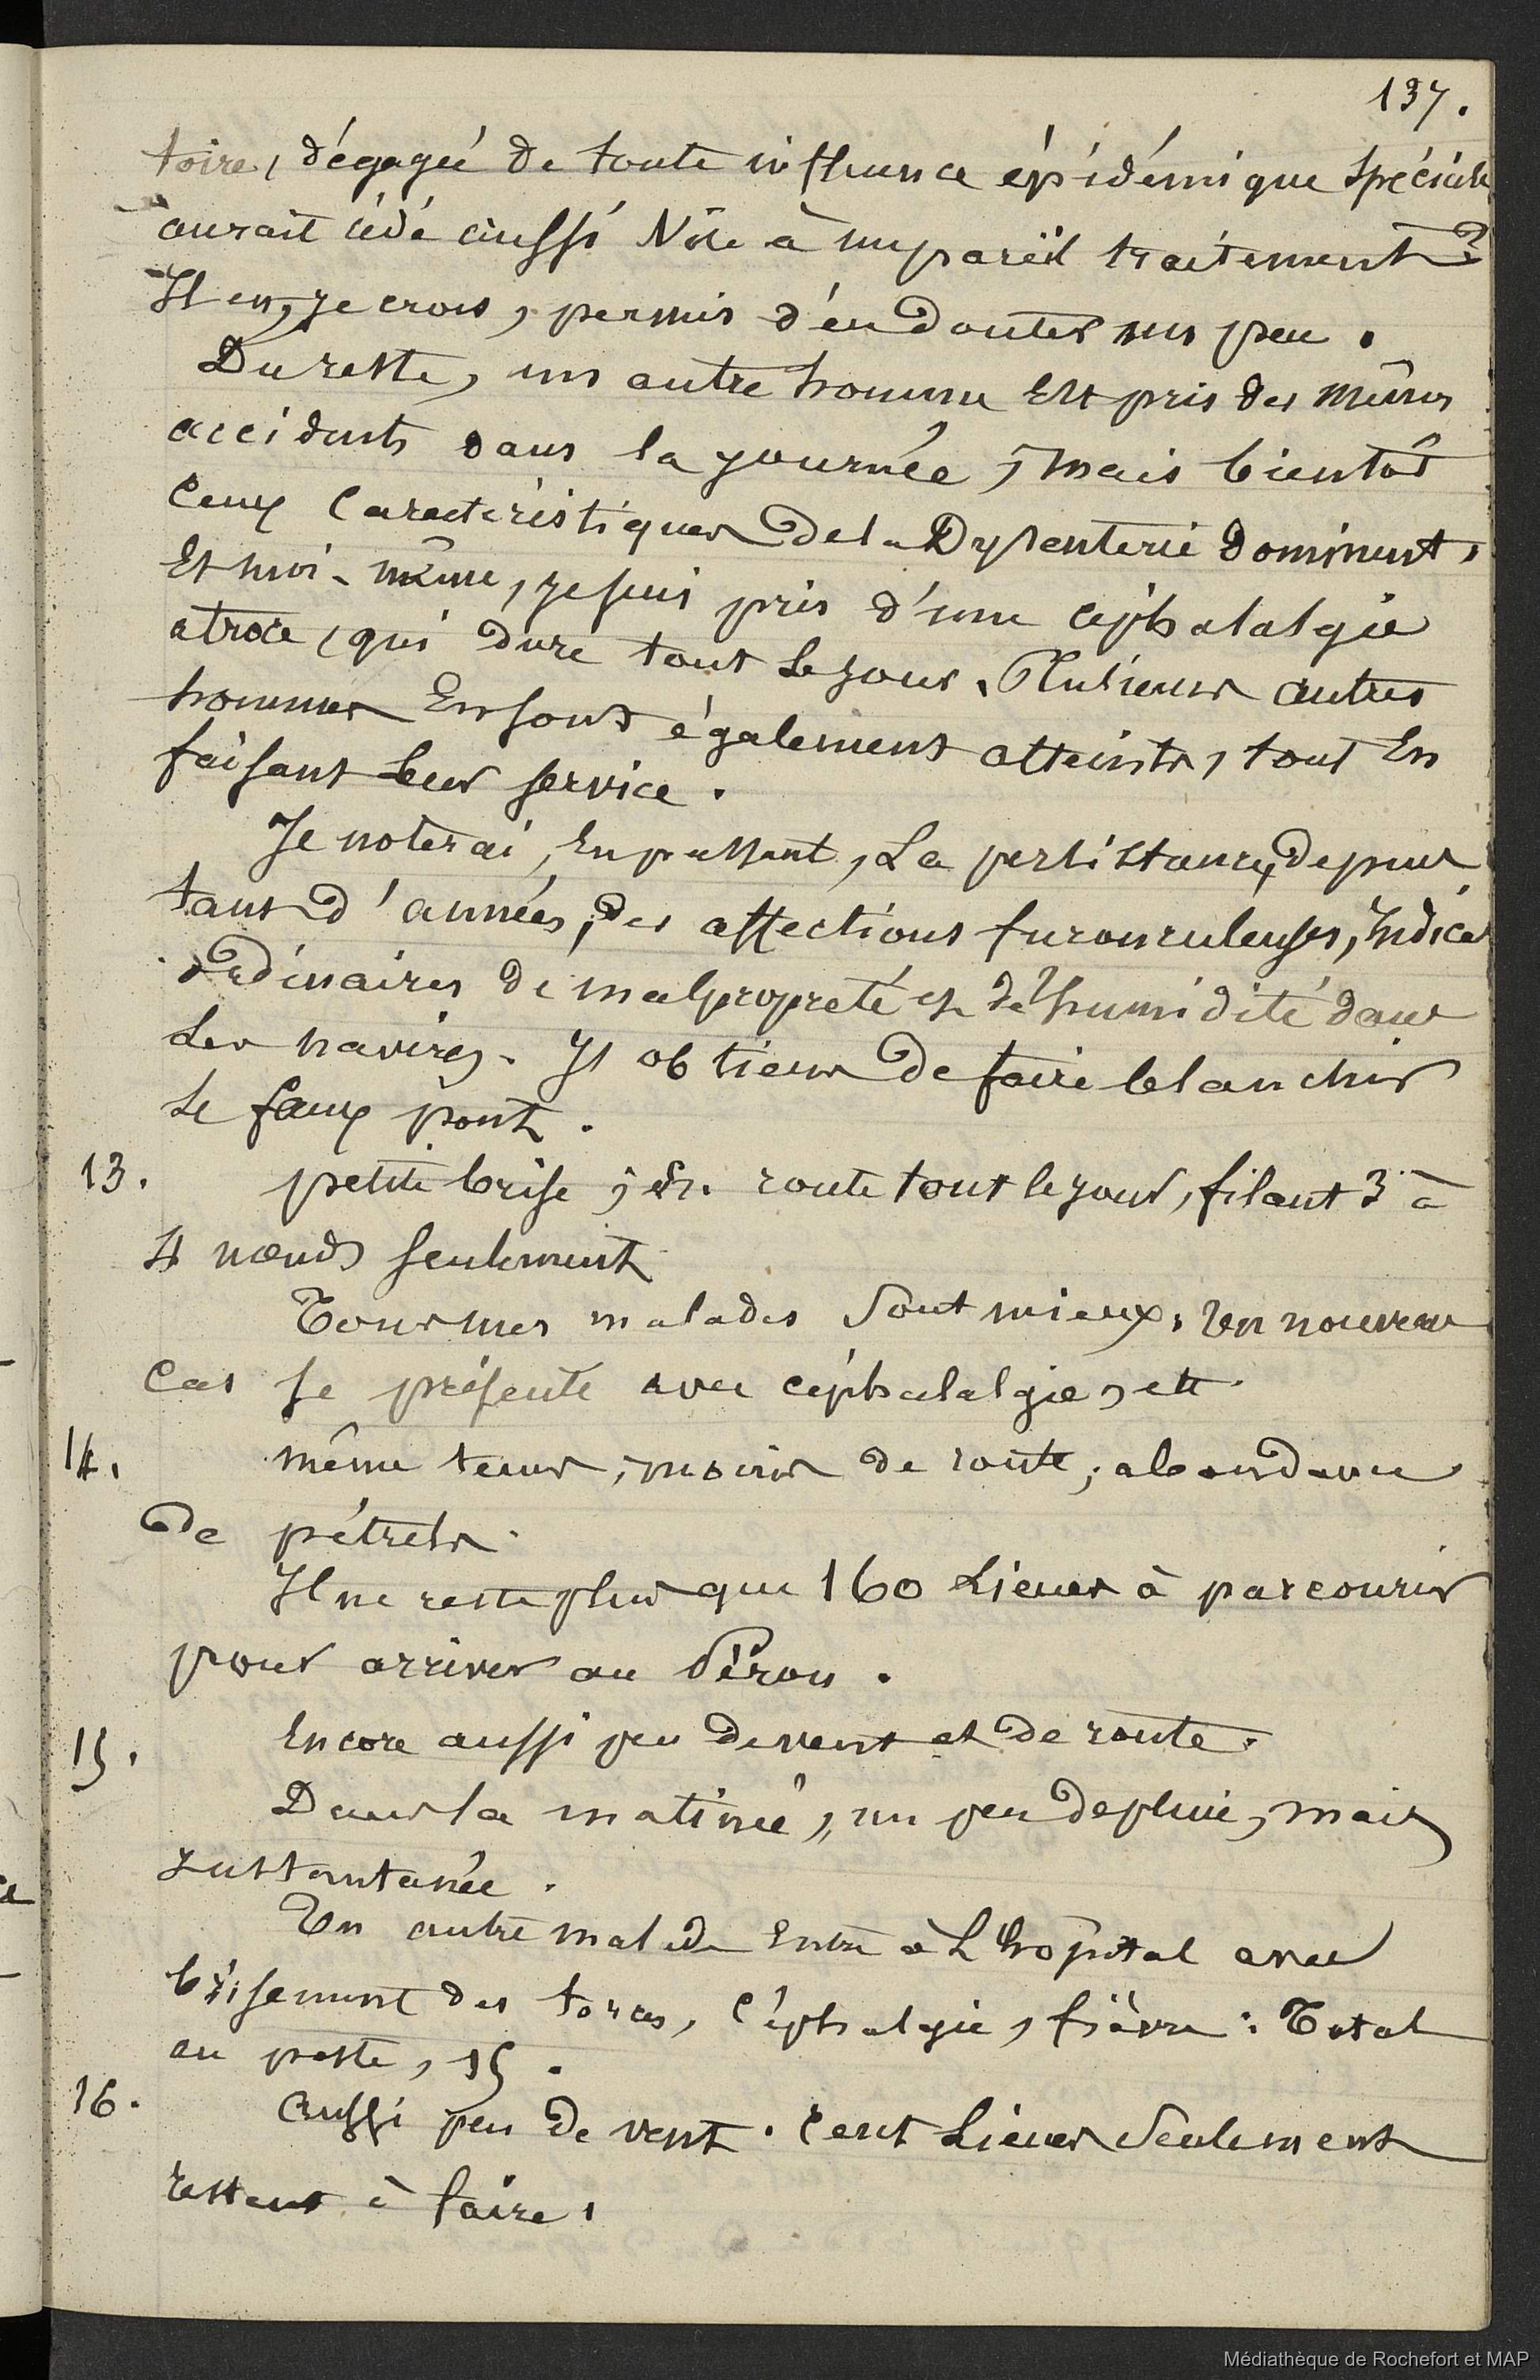 137.
toire, dégagée de toute influence épidémique spéciale
aurait cédé aussi vite à un pareil traitement ?
Il est, je crois, permis d'en douter un peu.
Du reste, un autre homme est pris des mêmes
accidents dans la journée, mais bientôt
ceux caractéristiques de la Dysenterie dominent,
Et moi-même, je suis pris d'une céphalalgie
atroce, qui dure tout le jour. Plusieurs autres
hommes En sont également atteints, tout En
faisant leur service.
Je noterai, En passant, La persistance, depuis
tant d'années, des affections furonculeuses, Indices
ordinaires de malpropreté et de l'humidité dans
Les navires. J'obtiens De faire blanchir
Le faux pont.
13. petite brise ; En route tout le jour, filant 3 à
4 nœuds seulement
Tous mes malades sont mieux, Un nouveau
cas se présente avec céphalalgie, etc
14. même temps, moins de route, abondance
De pétrels.
Il ne reste plus que 160 Lieues à parcourir
pour arriver au Pérou.
15. Encore aussi peu de vent et De route.
Dans la matinée, un peu de pluie, mais
instantanée.
Un autre malade Entre à L'hôpital avec
brisement des forces, Céphalgie, fièvre : Total
au poste, 15.
16. Aussi peu De vent. Cent Lieues Seulement
restent à faire,
Médiathèque de Rochefort et MAP